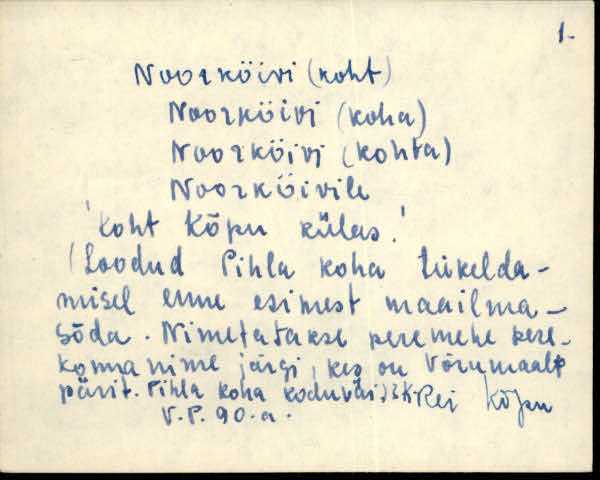 1.
Noorkõivi (koht)
Noorkõivi (koha)
Noorkõivi (kohta)
Noorkõivile
'koht Kõpu külas.'
(Loodud Pihla koha tükelda-
misel enne esimest maailma-
sõda. Nimetatakse peremehe pere-
konnanime järgi, kes on Võrumaalt
pärit. Pihla koha koduväi.) Rei Kõpu
V.P. 90.a.